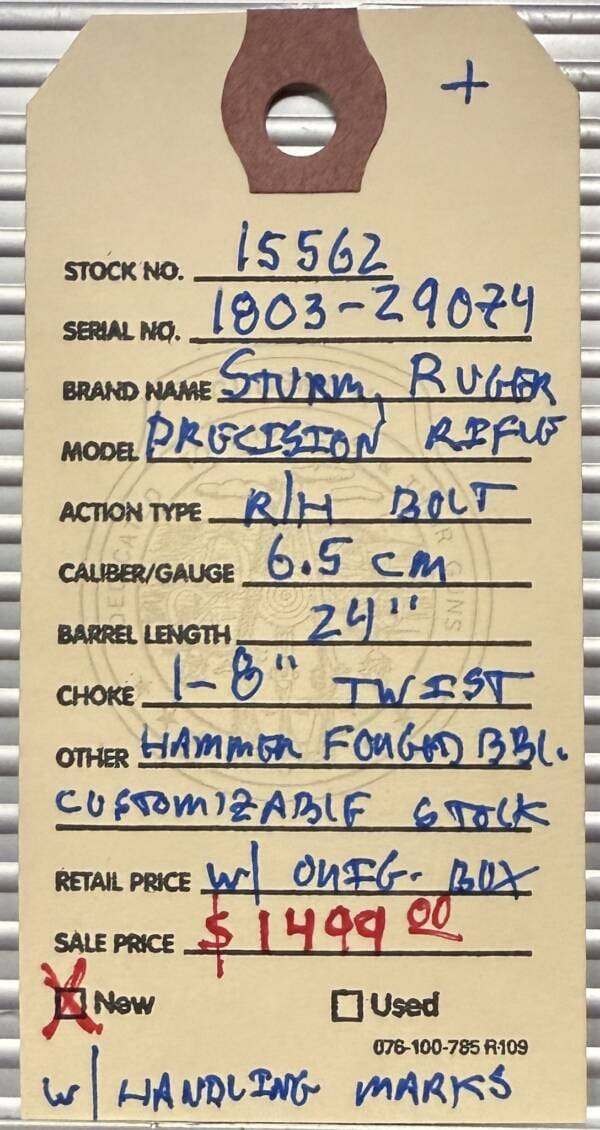 +
STOCK NO. 15562
SERIAL NO. 1803-29074
BRAND NAME STURM, RUGER
MODEL PRECISION RIFLE
ACTION TYPE R/H BOLT
CALIBER/GAUGE 6.5 CM
BARREL LENGTH 24"
CHOKE 1-8" TWIST
OTHER HAMMER FORGED BBL.
CUSTOMIZABLE STOCK
RETAIL PRICE W/ ORIG. BOX
SALE PRICE $1499 00
X New Used
076-100-785 R-109
W/ HANDLING MARKS